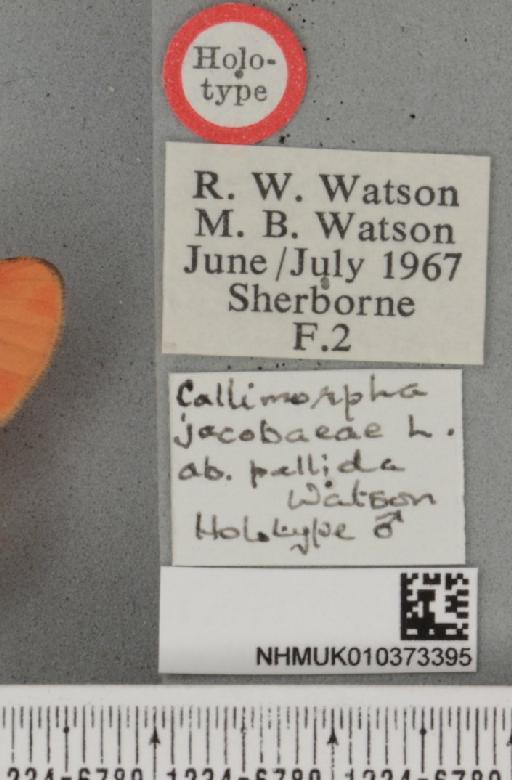 Holo-
type
R. W. Watson
M. B. Watson
June/July 1967
Sherborne
F.2
Callimorpha
jacobaeae L.
ab. pallida
Watson
Holotype ♂
NHMUK010373395